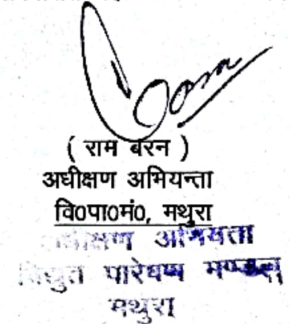 ( राम बरन )
अधीक्षण अभियन्ता
वि0पा0मं0, मथुरा
अधीक्षण अभियंता
विद्युत पारेषण मण्डल
मथुरा